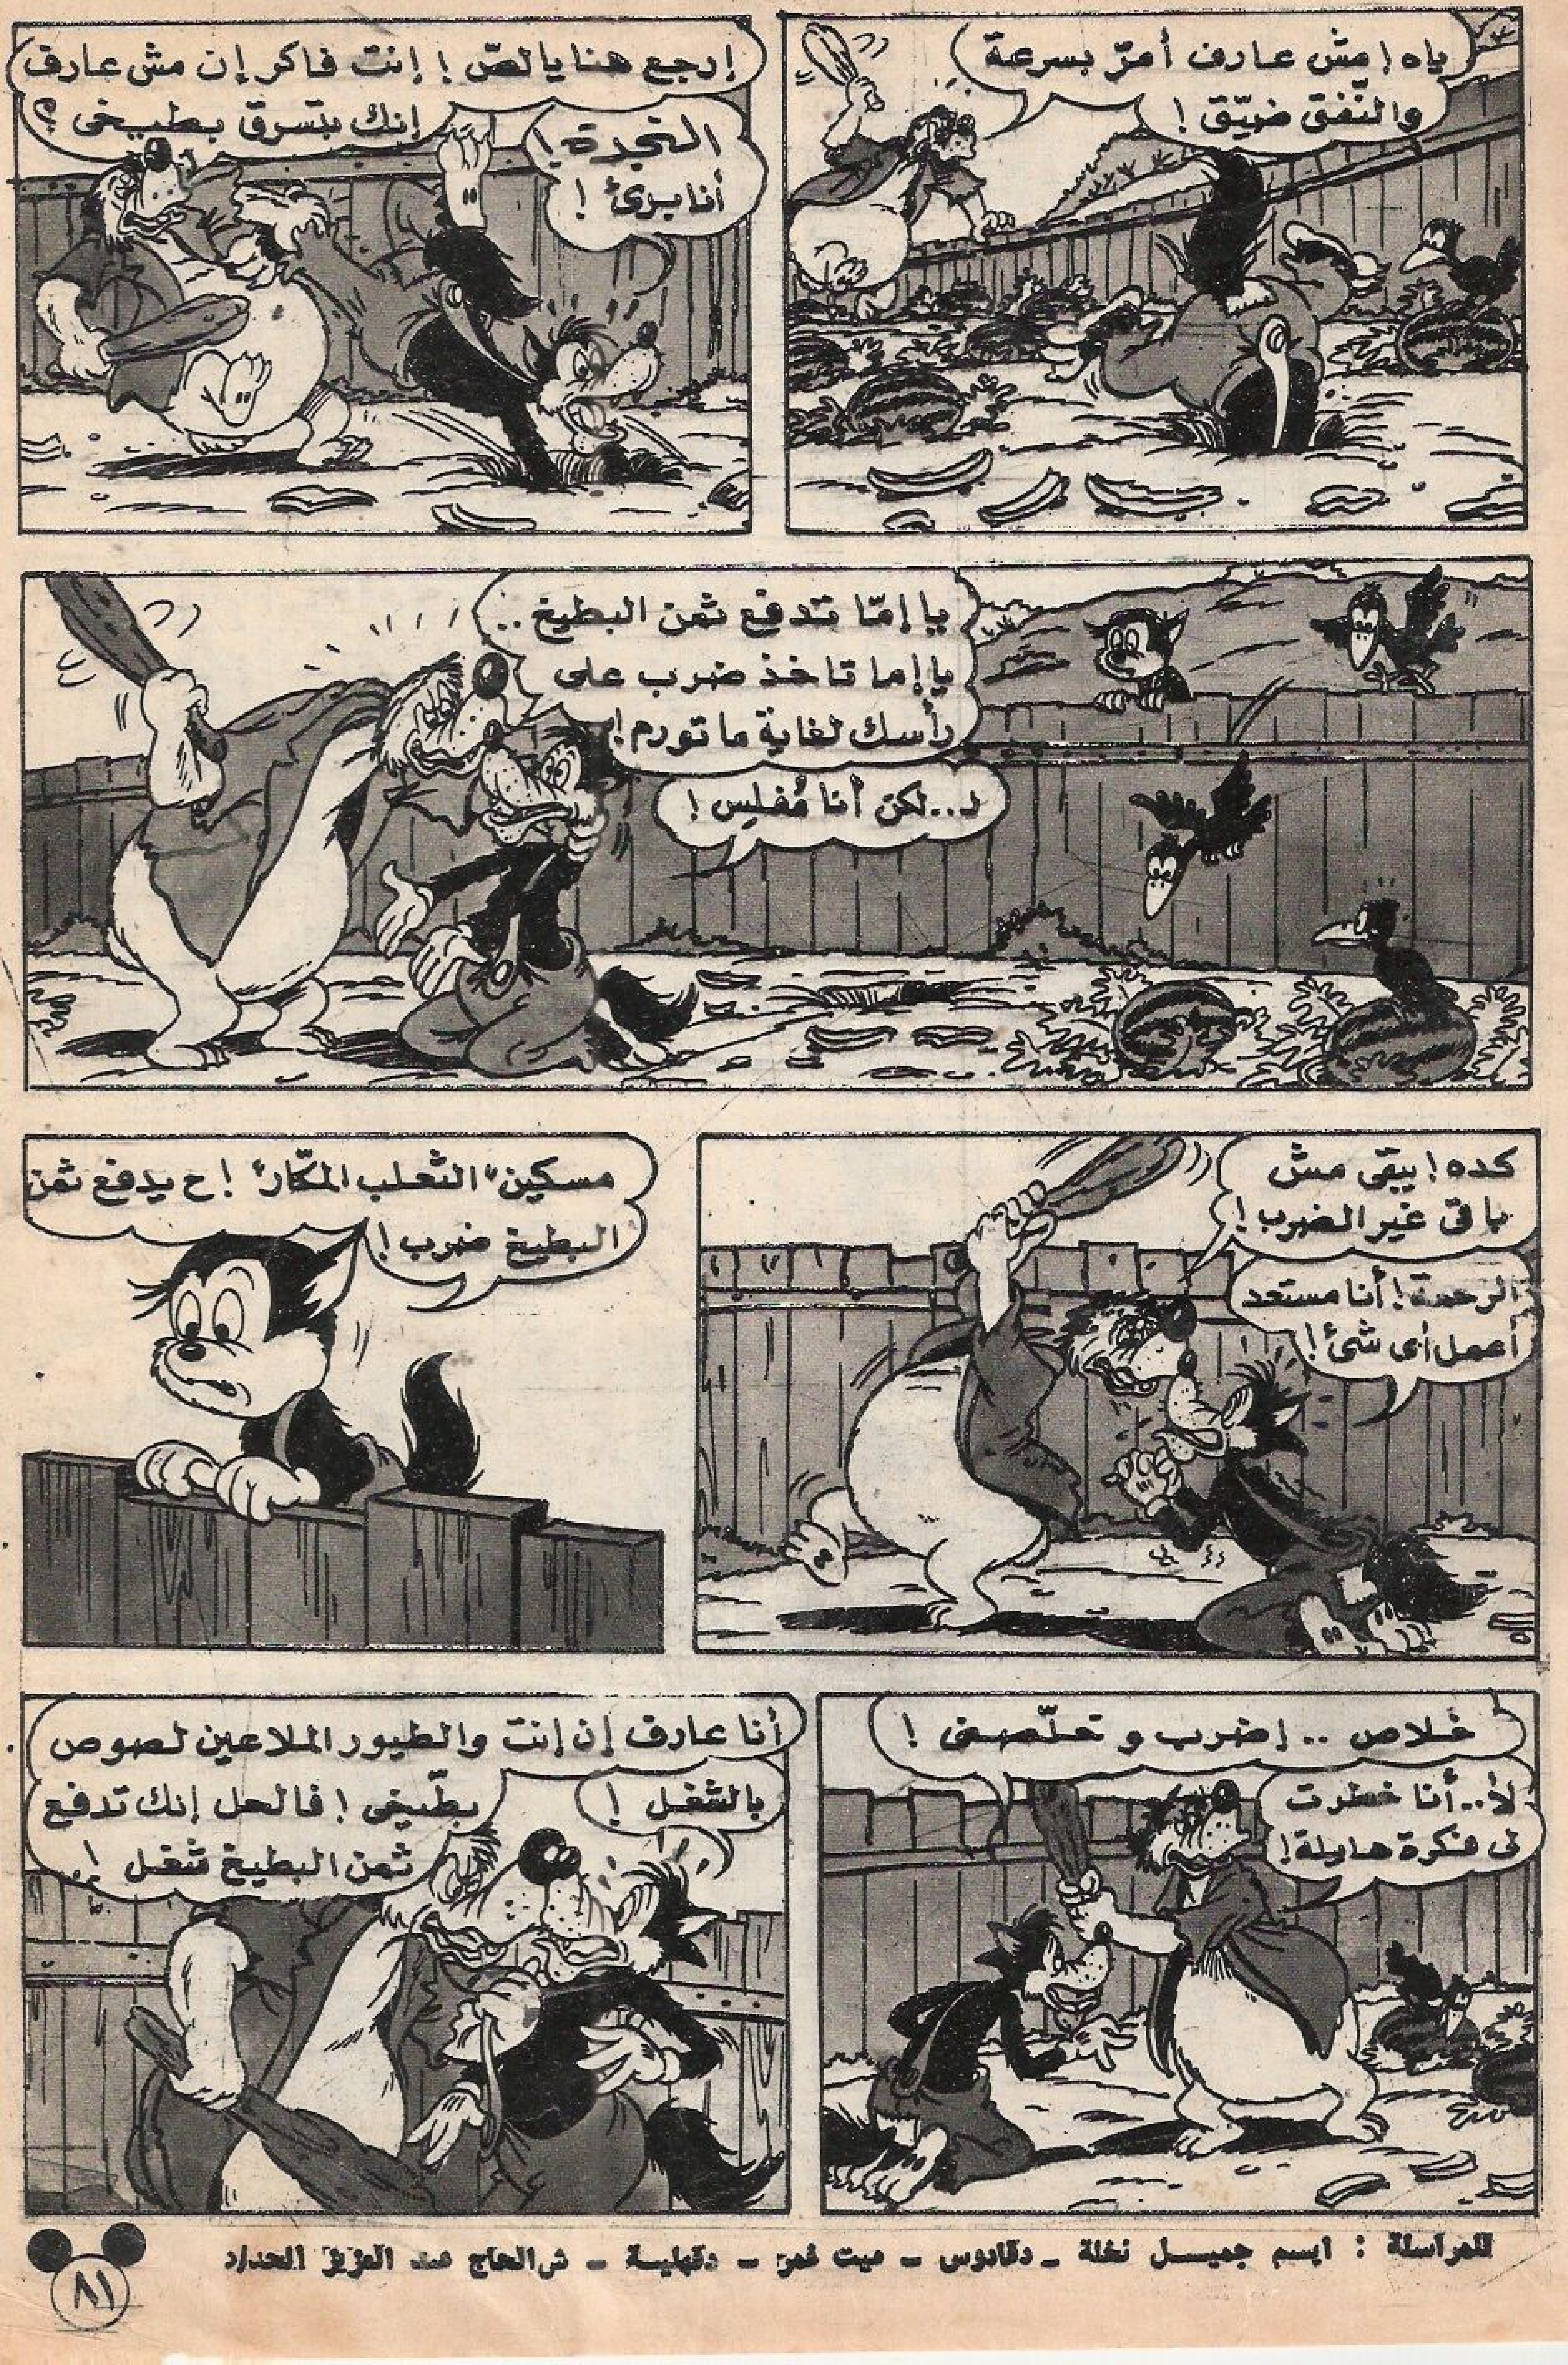 ياه ! مش عارف أمرّ بسرعة
والنّفق ضيّق !
إرجع هنا يا لصّ ! إنت فاكر إن مش عارف
إنك بتسرق بطيخى ؟
النجدة !
أنا برئ !
يا إمّا تدفع ثمن البطيخ ..
يا إما تاخذ ضرب على
رأسك لغاية ما تورم !
لـ..لكن أنا مُفلِس !
كده ! يبقى مش
باقى غير الضرب !
الرحمة ! أنا مستعد
أعمل أى شئ !
مسكين "الثعلب المكّار" ! ح يدفع ثمن
البطيخ ضرب !
خلاص .. إضرب و خلّصنى !
لأ.. أنا خطرت
لى فكرة هايلة !
أنا عارف إن إنت والطيور الملاعين لصوص
بطّيخى ! فالحل إنك تدفع
ثمن البطيخ شغل !
بالشغل !
للمراسلة : ايسم جميسل نخلة - دقادوس - ميت غمر - دقهلية - ش الحاج عبد العزيز الحداد
٨١